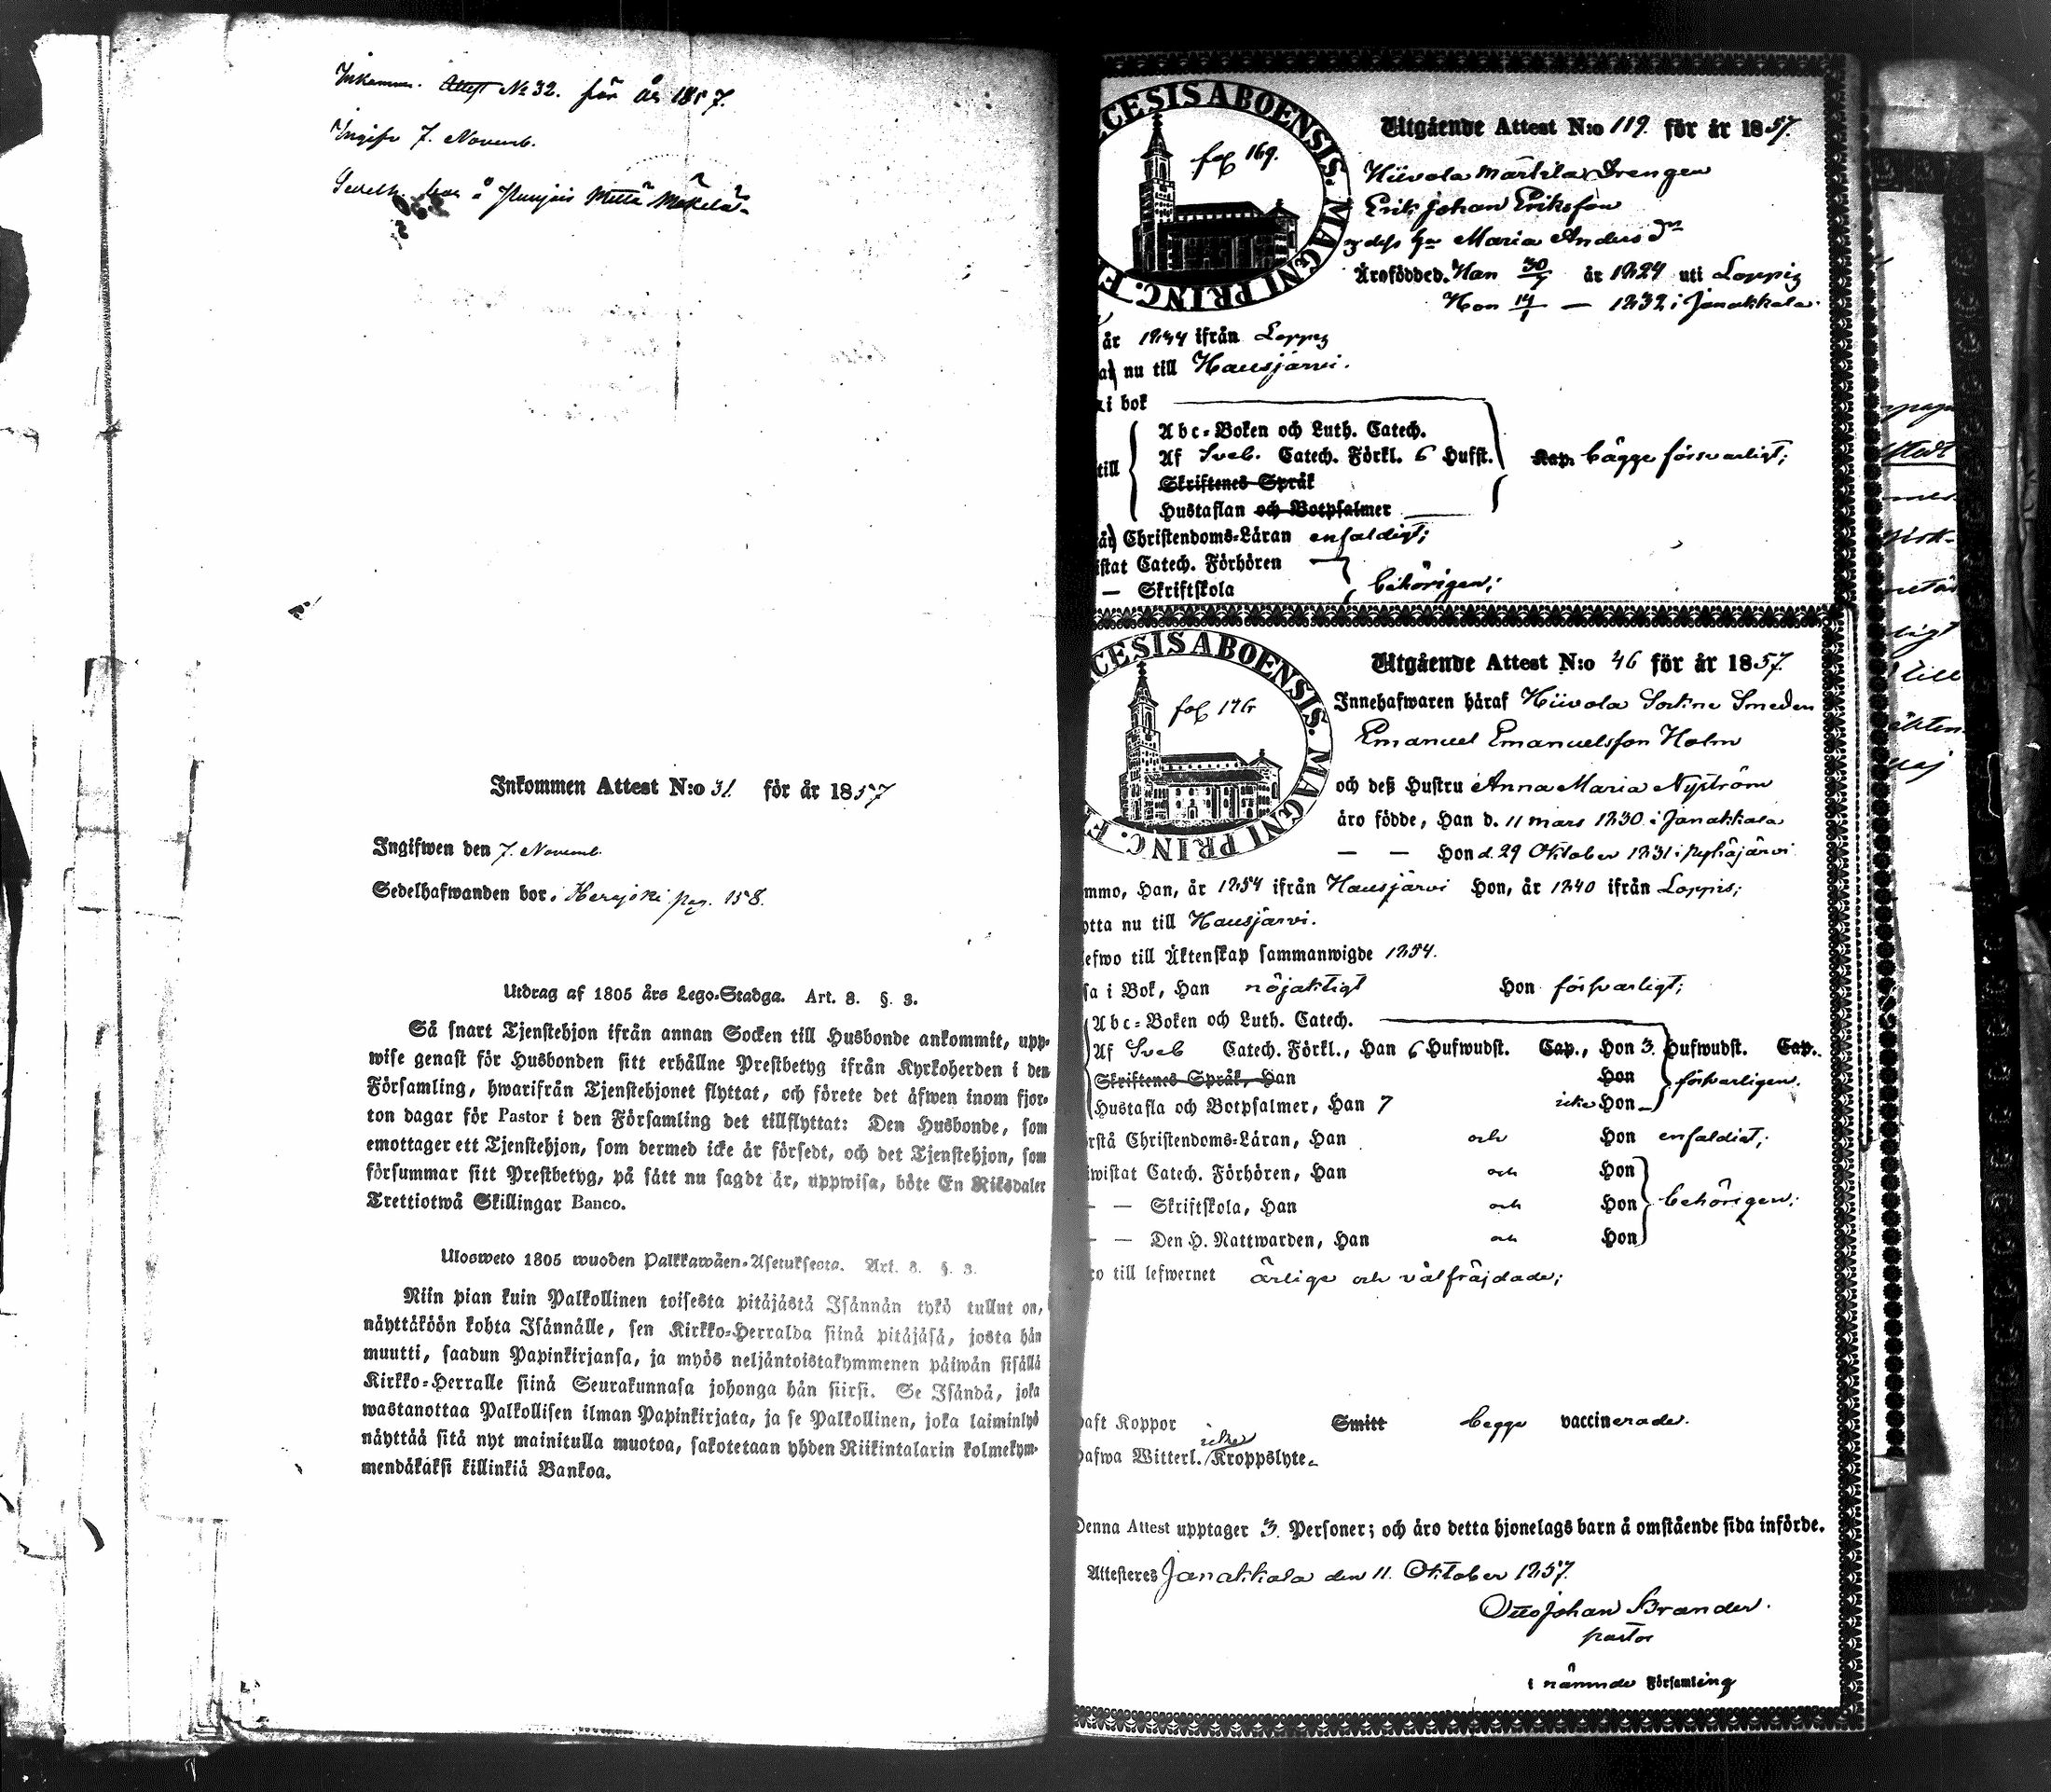 Inkommen Attest № 32. för år 1857.
Ingifv 7. Novemb.
å Punjois Mettä Mäkelä
Inkommen Attest N:o 31. för år 1857
Ingifwen den 7. Novemb.
Sedelhafwanden bor i Herajoki pag. 158.
Utdrag af 1805 års Lego-Stadga. Art. 8. §. 3.
Så snart Tjenstehjon ifrån annan Socken till Husbonde ankommit, upp-
wise genast för Husbonden sitt erhållne Prestbetyg ifrån Kyrkoherden i den
Församling, hwarifrån Tjenstehjonet flyttat, och förete det äfwen inom fjor-
ton dagar för Pastor i den Församling det tillflyttat: Den Husbonde, som
emottager ett Tjenstehjon, som dermed icke är försedt, och det Tjenstehjon, som
försummar sitt Prestbetyg, på sätt nu sagdt är, uppwisa, böte En Riksdaler
Trettiotwå Skillingar Banco.
Ulosweto 1805 wuoden Palkkawäen-Asetuksesta. Art. 8. §. 3.
Niin pian kuin Palkollinen toisesta pitäjästä Isännän tykö tullut on,
näyttäköön kohta Isännälle, sen Kirkko-Herralda siinä pitäjäsä, josta hän
muutti, saadun Papinkirjansa, ja myös neljäntoistakymmenen päiwän sisällä
Kirkko-Herralle siinä Seurakunnasa johonga hän siirsi. Se Isändä, joka
wastanottaa Palkollisen ilman Papinkirjata, ja se Palkollinen, joka laiminlyö
näyttää sitä nyt mainitulla muotoa, sakotetaan yhden Riikintalarin kolmekym-
mendäkaksi killinkiä Bankoa.
CESIS ABOENSIS. MAGNI PRINC. F
fol 169.
Utgående Attest N:o 119. för år 1857.
Hiivola Märkila Drengen
Erik Johan Eriksson
Maria Anders dr
Äro födded. Han 30/7 år 1824 uti Loppis
Hon 14/1 — 1832 i Janakkala.
år 1844 ifrån Loppis
nu till Hausjärvi.
i bok
Abc-Boken och Luth. Catech.
till Af Sveb. Catech. Förkl. 6 Hufst. Kap. bägge försvarligt;
Skriftenes Språk
Hustaflan och Botpsalmer
Christendoms-Läran enfaldigt;
istat Catech. Förhören
— Skriftskola behörigen;
CESIS ABOENSIS. MAGNI PRINC. F
fol 176
Utgående Attest N:o 46 för år 1857.
Innehafwaren häraf Hiivola Smeden
Emanuel Emanuelsson Holm
och deß Hustru Anna Maria Nyström
äro födde, Han d. 11 mars 1830 i Janakkala
— — Hon d. 29 Oktober 1831 i Pyhäjärvi
mmo, Han, år 1854 ifrån Hausjärvi Hon, år 1840 ifrån Loppis;
otta nu till Hausjärvi.
lefwo till Äktenskap sammanwigde 1854.
sa i Bok, Han nöjaktigt Hon försvarligt;
Abc-Boken och Luth. Catech.
Af Sveb Catech. Förkl., Han 6 Hufwudst. Cap., Hon 3. Hufwudst. Cap.
Skriftenes Språk, Han Hon försvarligen.
Hustafla och Botpsalmer, Han 7 icke Hon
rstå Christendoms-Läran, Han och Hon enfaldigt;
iwistat Catech. Förhören, Han och Hon
— — Skriftskola, Han och Hon behörigen;
— — Den H. Nattwarden, Han och Hon
ro till lefwernet ärlige och välfräjdade;
haft Koppor Smitt begge vaccinerade.
hafwa Witterl. icke Kroppslyte.
Denna Attest upptager 3. Personer; och äro detta hjonelags barn å omstående sida införde.
Attesteres Janakkala den 11. Oktober 1857.
Otto Johan Brander.
pastor
i nämnde Församling